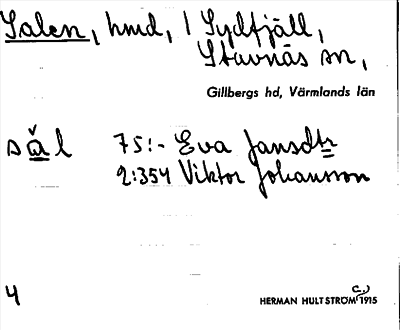 Salen, hmd, 1 Sydfjäll,
Stavnäs sn,
Gillbergs hd, Värmlands län
sǎl 75:- Eva Jansdtr
2:354 Viktor Johansson
4
HERMAN HULTSTRÖM (c.) 1915